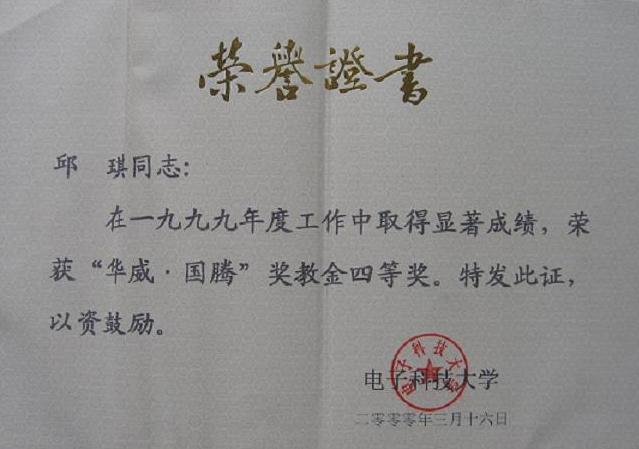 荣誉證書
邱 琪同志:
在一九九九年度工作中取得显著成绩,荣
获“华威·国腾”奖教金四等奖。特发此证,
以资鼓励。
电子科技大学
电子科技大学
二零零零年三月十六日